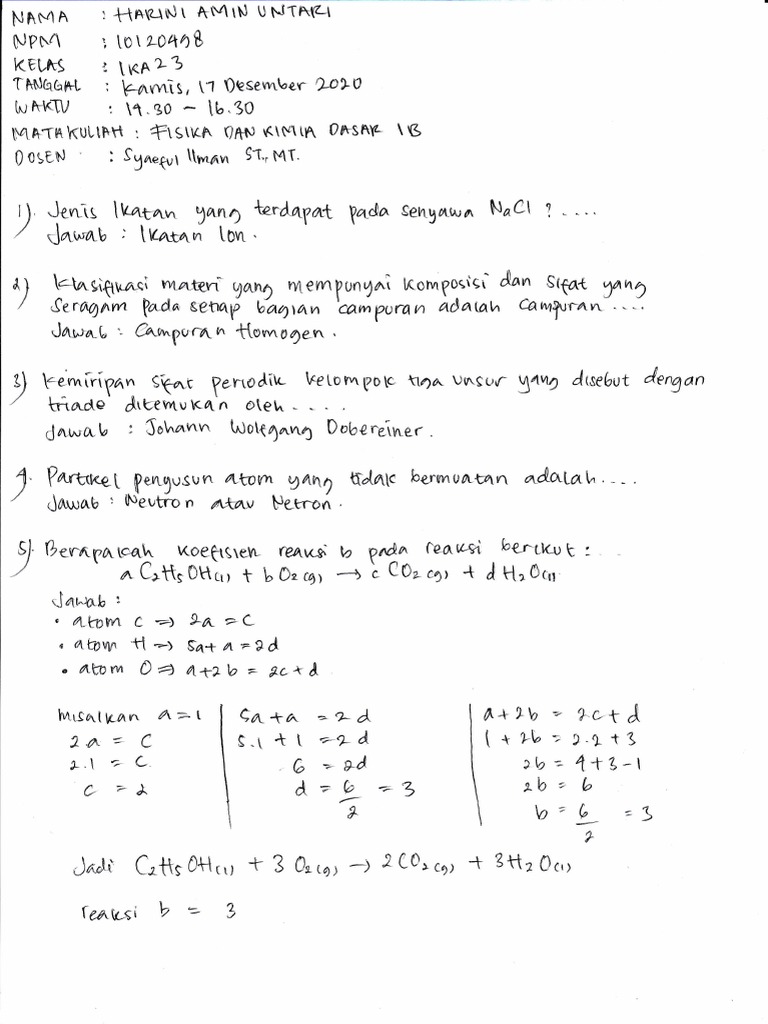 NAMA : HARINI AMIN UNTARI
NPM : 10120498
KELAS : 1KA23
TANGGAL : Kamis, 17 Desember 2020
WAKTU : 14.30 - 16.30
MATAKULIAH : FISIKA DAN KIMIA DASAR 1B
DOSEN : Syaeful Ilman ST., MT.
1). Jenis Ikatan yang terdapat pada senyawa NaCl ? ....
Jawab : Ikatan Ion.
2) Klasifikasi materi yang mempunyai komposisi dan sifat yang
seragam pada setiap bagian campuran adalah campuran ....
Jawab : Campuran Homogen.
3) Kemiripan sifat periodik kelompok tiga unsur yang disebut dengan
triade ditemukan oleh .....
Jawab : Johann Wolfgang Dobereiner.
4. Partikel penyusun atom yang tidak bermuatan adalah....
Jawab : Neutron atau Netron.
5). Berapakah koefisien reaksi b pada reaksi berikut :
a C2H5OH(l) + b O2(g) → c CO2(g) + d H2O(l)
Jawab :
• atom C => 2a = c
• atom H => 5a + a = 2d
• atom O => a + 2b = 2c + d
Misalkan a = 1
2a = c
2.1 = c
c = 2
5a + a = 2d
5.1 + 1 = 2d
6 = 2d
d = 6/2 = 3
a + 2b = 2c + d
1 + 2b = 2.2 + 3
2b = 4 + 3 - 1
2b = 6
b = 6/2 = 3
Jadi C2H5OH(l) + 3 O2(g) → 2 CO2(g) + 3 H2O(l)
reaksi b = 3